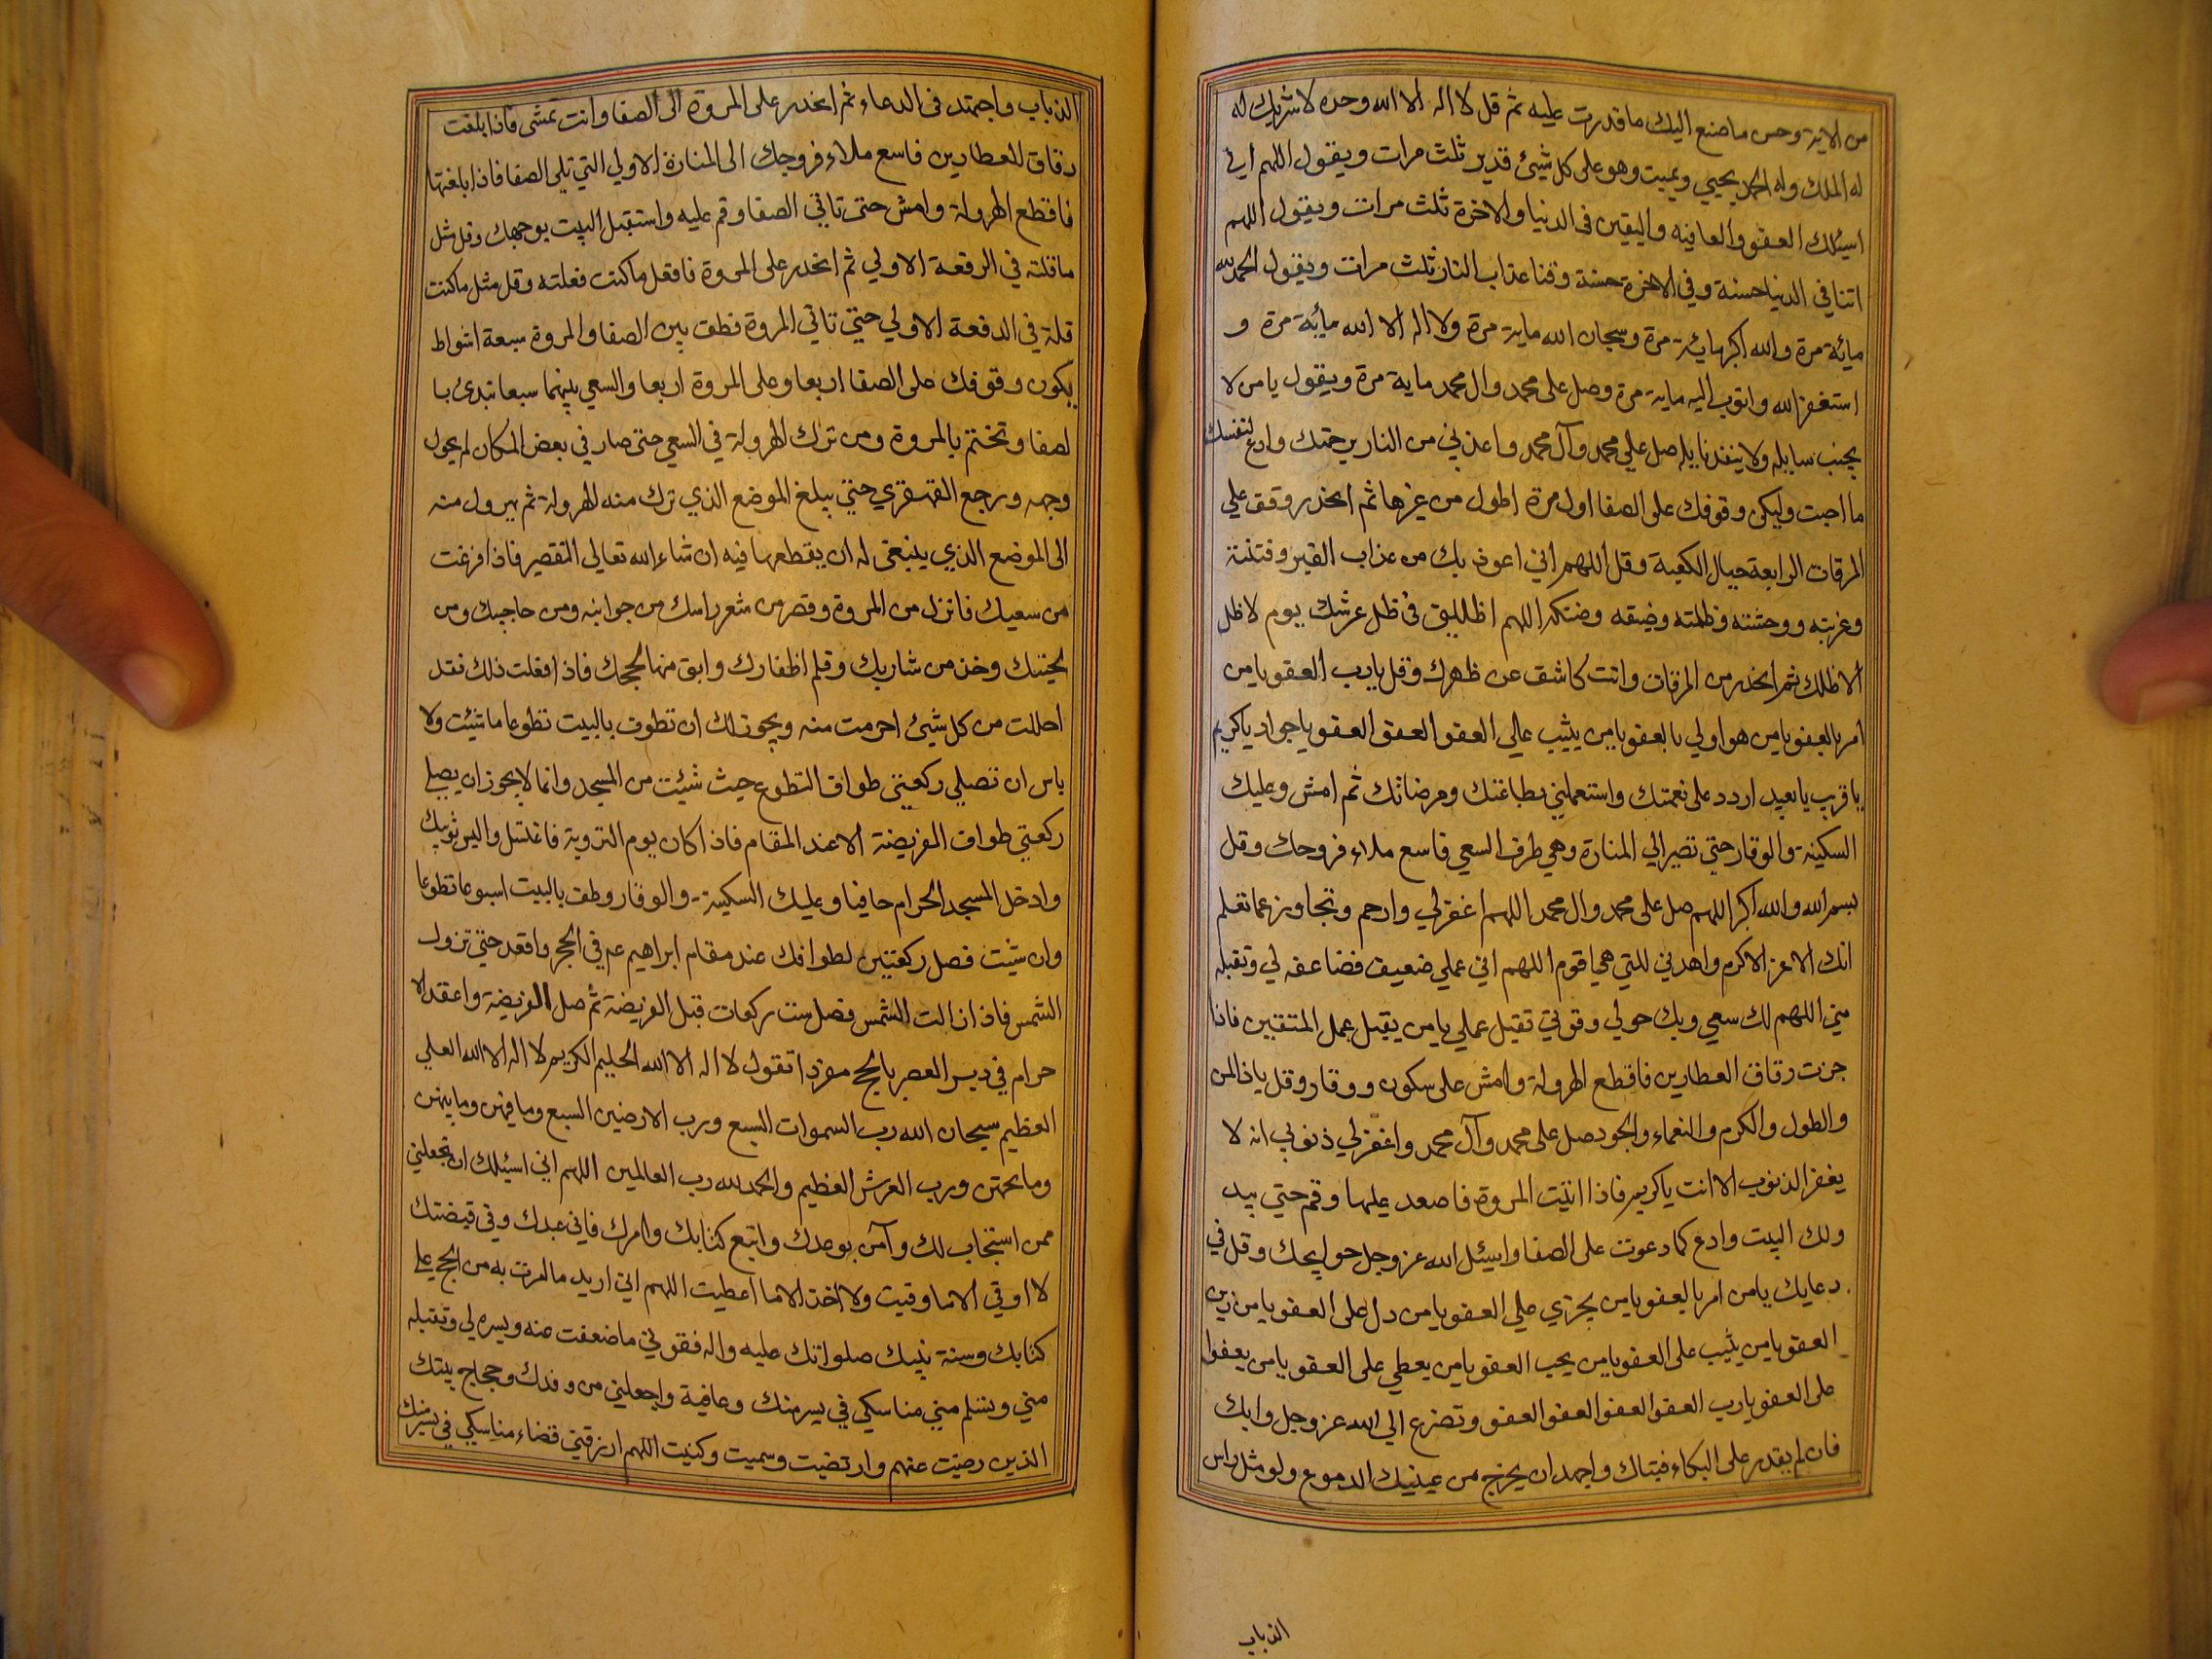 من الايه وحس ماصنع اليك ماقدرت عليه ثم قل لا اله الا الله وحده لاشريك له
له الملك وله الحمد يحيي ويميت وهو على كل شيئ قدير ثلث مرات ويقول اللهم اني
اسئلك العفو والعافيه واليقين فى الدنيا والاخرة ثلث مرات ويقول اللهم
اتنا في الدنيا حسنة وفي الاخرة حسنة وقنا عذاب النار ثلث مرات ويقول الحمد لله
مائة مرة والله اكبر مائة مرة وسبحان الله ماية مرة ولا اله الا الله مائة مرة و
استغفر الله واتوب اليه ماية مرة وصل على محمد وال محمد ماية مرة ويقول يا من لا
يخيب سايله ولا ينفد نايله صل علي محمد وآل محمد واعذني من النار برحمتك وادع لنفسك
ما احبت وليكن وقوفك على الصفا اول مرة اطول من غيرها ثم انحدر وقف علي
المرقات الرابعة حيال الكعبة وقل اللهم اني اعوذ بك من عذاب القبر وفتنة
وغربته ووحشته وظلمته وضيقه وضنكه اللهم اظللنى فى ظل عرشك يوم لا ظل
الا ظلك ثم انحدر من المرقات وانت كاشف عن ظهرك وقل يا رب العفو يا من
امر بالعفو يا من هو اولي بالعفو يا من يثيب على العفو العفو العفو يا جواد يا كريم
يا قريب يا بعيد اردد على نعمتك واستعملني بطاعتك ومرضاتك ثم امش وعليك
السكينة والوقار حتى تصير الي المنارة وهي طرف السعي فاسع ملاء فروجك وقل
بسم الله والله اكبر اللهم صل على محمد وال محمد اللهم اغفر لي وارحم وتجاوز عما تعلم
انك الاعز الاكرم واهدني للتي هي اقوم اللهم اني عملي ضعيف فضاعفه لي وتقبله
مني اللهم لك سعيي وبك حولي وقوتي تقبل عملي يا من يقبل عمل المتقين فاذا
جزت زقاق العطارين فاقطع الهرولة وامش على سكون ووقار وقل يا ذا المن
والطول والكرم والنعماء والجود صل على محمد وآل محمد واغفر لي ذنوبي انه لا
يغفر الذنوب الا انت يا كريم فاذا اتيت المروة فاصعد عليها وقم حتي يبد
ولك البيت وادع كما دعوت على الصفا واسئل الله عز وجل حوايجك وقل في
دعايك يا من امر بالعفو يا من يجزي علي العفو يا من دل على العفو يا من زين
العفو يا من يثيب على العفو يا من يحب العفو يا من يعطي على العفو يا من يعفوا
على العفو يا رب العفو العفو العفو العفو وتضرع الي الله عز وجل وابك
فان لم يقدر على البكاء فتباك واجهد ان يخرج من عينيك الدموع ولو مثل راس
الذباب
الذباب واجتهد فى الدعاء ثم انحدر على المروة الى الصفا وانت تمشى فاذا بلغت
زقاق العطارين فاسع ملاء فروجك الى المنارة الاولي التي تلي الصفا فاذا بلغتها
فاقطع الهرولة وامش حتى تاتي الصفا وقم عليه واستقبل البيت بوجهك وقل مثل
ما قلته في الرفعة الاولي ثم انحدر على المروة فافعل ما كنت فعلته وقل مثل ما كنت
قلته في الدفعة الاولي حتي تاتي المروة فطف بين الصفا والمروة سبعة اشواط
يكون وقوفك على الصفا اربعا وعلى المروة اربعا والسعي بينهما سبعا تبدئ با
لصفا وتختتم بالمروة ومن ترك الهرولة في السعي حتى صار في بعض المكان لم يحول
وجهه ورجع القهقري حتي يبلغ الموضع الذي ترك منه الهرولة ثم يهرول منه
الى الموضع الذي ينبغى له ان يقطعها فيه ان شاء الله تعالي التقصير فاذا فرغت
من سعيك فانزل من المروة وقصر من شعر راسك من جوانبه ومن حاجبك ومن
لحيتك وخذ من شاربك وقلم اظفارك وابق منها لحجك فاذا فعلت ذلك فقد
احللت من كل شيئ احرمت منه ويجوز لك ان تطوف بالبيت تطوعا ما شئت ولا
باس ان تصلي ركعتي طواف التطوع حيث شئت من المسجد وانما لا يجوز ان يصلي
ركعتي طواف الفريضة الا عند المقام فاذا كان يوم التروية فاغتسل والبس ثوبيك
وادخل المسجد الحرام حافيا وعليك السكينة والوقار وطف بالبيت اسبوعا تطوعا
وان شئت فصل ركعتين لطوافك عند مقام ابراهيم عم في الحجر واقعد حتي تزول
الشمس فاذا زالت الشمس فصل ست ركعات قبل الفريضة ثم صل الفريضة واعقد الا
حرام في دبر العصر بالحج مفردا تقول لا اله الا الله الحليم الكريم لا اله الا الله العلي
العظيم سبحان الله رب السموات السبع ورب الارضين السبع وما فيهن وما بينهن
وما تحتهن ورب العرش العظيم والحمد لله رب العالمين اللهم اني اسئلك ان تجعلني
ممن استجاب لك وآمن بوعدك واتبع كتابك وامرك فاني عبدك وفي قبضتك
لا اوقي الا ما وقيت ولا آخذ الا ما اعطيت اللهم اني اريد ما امرت به من الحج علي
كتابك وسنة نبيك صلواتك عليه واله فقوني ما ضعفت عنه ويسره لي وتقبله
مني وتسلم مني مناسكي في يسر منك وعافية واجعلني من وفدك وحجاج بيتك
الذين رضيت عنهم وارتضيت وسميت وكتبت اللهم ارزقني قضاء مناسكي في يسر منك